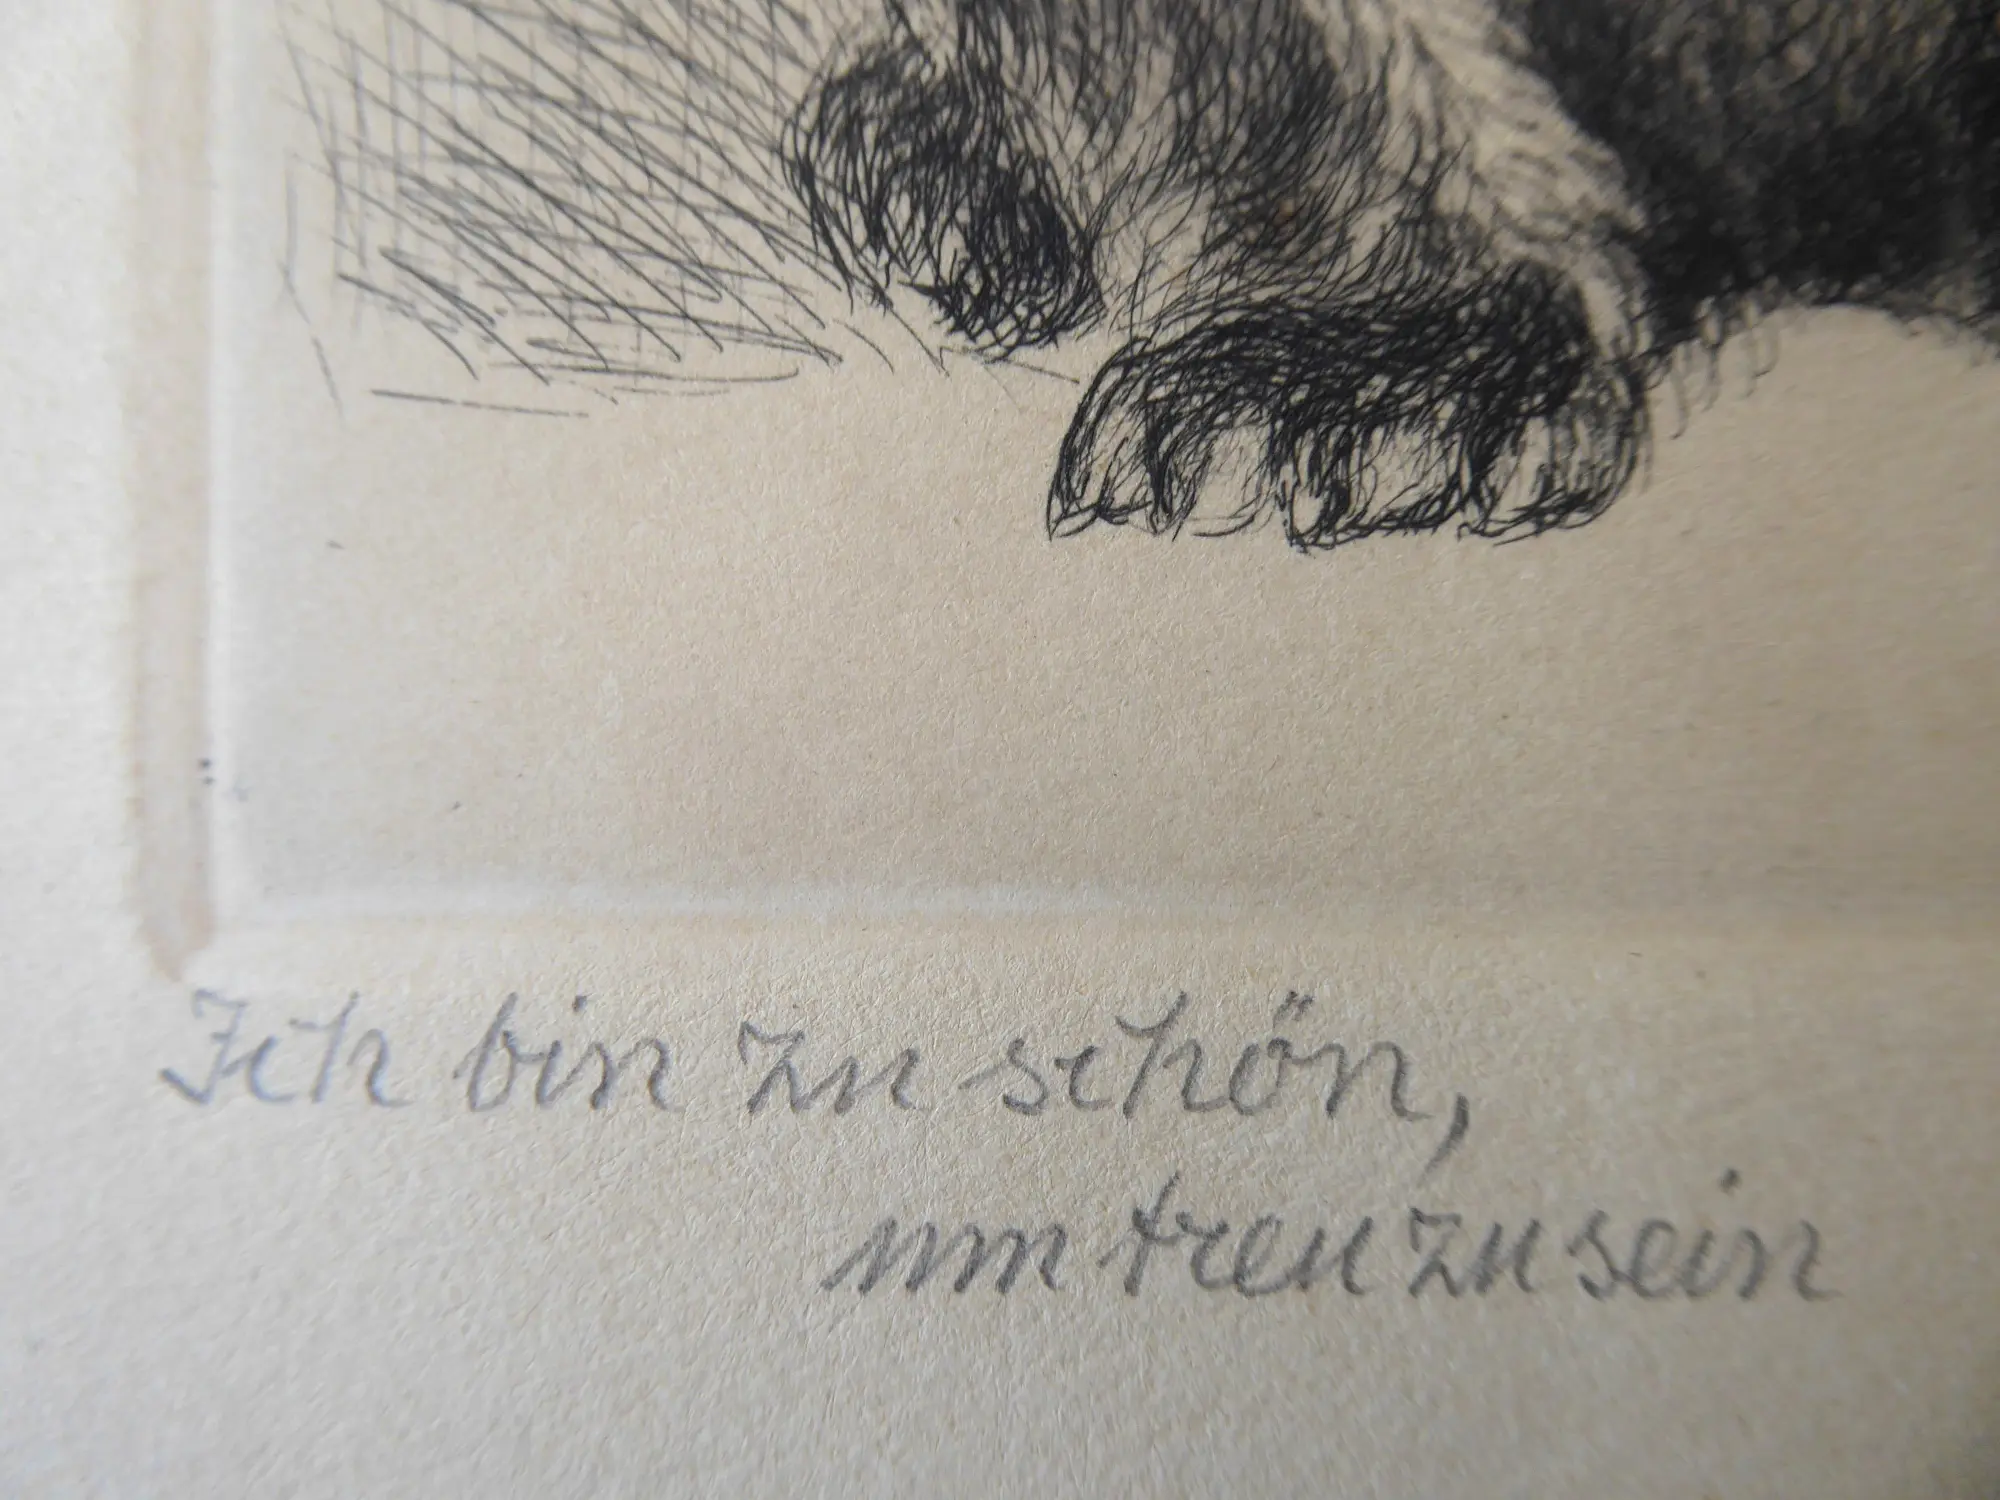 Ich bin zu schön,
um treu zu sein